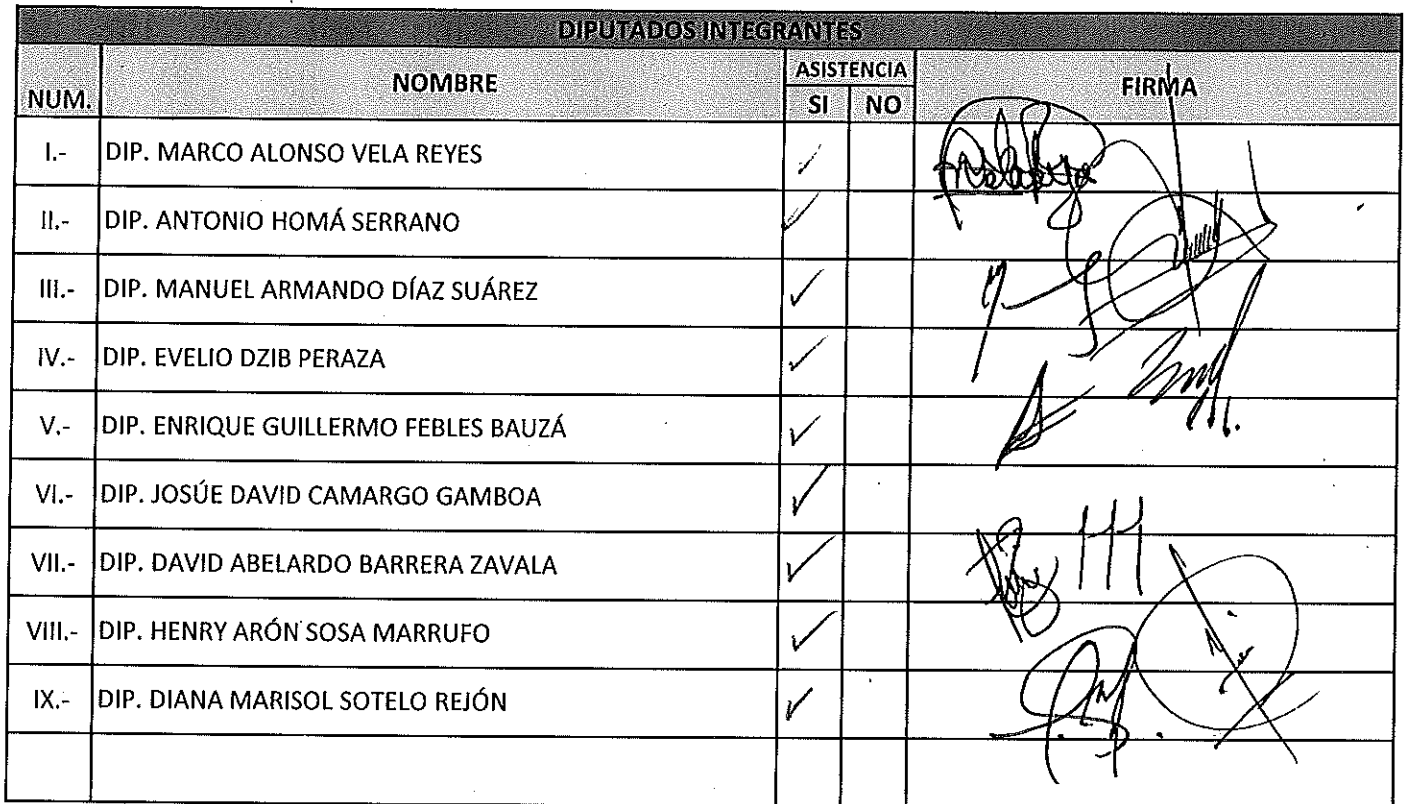 DIPUTADOS INTEGRANTES
NUM. NOMBRE ASISTENCIA FIRMA
SI NO
I.- DIP. MARCO ALONSO VELA REYES ✓
II.- DIP. ANTONIO HOMÁ SERRANO ✓
III.- DIP. MANUEL ARMANDO DÍAZ SUÁREZ ✓
IV.- DIP. EVELIO DZIB PERAZA ✓
V.- DIP. ENRIQUE GUILLERMO FEBLES BAUZÁ ✓
VI.- DIP. JOSÚE DAVID CAMARGO GAMBOA ✓
VII.- DIP. DAVID ABELARDO BARRERA ZAVALA ✓
VIII.- DIP. HENRY ARÓN SOSA MARRUFO ✓
IX.- DIP. DIANA MARISOL SOTELO REJÓN ✓